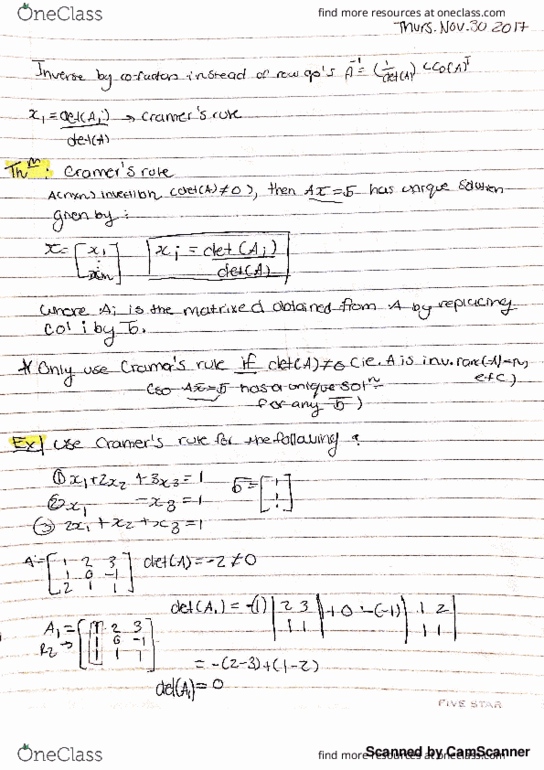 OneClass
find more resources at oneclass.com
Thurs. Nov. 30 2017
Inverse by cofactors instead of row op's A⁻¹ = (1/det(A)) (Co(A))ᵀ
x₁ = det(Aᵢ)/det(A) → Cramer's rule
Thᵐ: Cramer's rule
A(nxn) invertion (det(A) ≠ 0), then Ax̄ = b̄ has unique solution
given by:
x̄ = [x₁ ⋮ xn] xᵢ = det(Aᵢ)/det(A)
where Aᵢ is the matrixed obtained from A by replacing
col i by b̄.
* Only use Cramer's rule if det(A) ≠ 0 (ie. A is inv. rank(A)=n, etc)
(so Ax̄ = b̄ has a unique solⁿ
for any b̄)
Ex] use Cramer's rule for the following:
① x₁ + 2x₂ + 3x₃ = 1 b̄ = [1 1 1]
② x₁ - x₃ = 1
③ 2x₁ + x₂ + x₃ = 1
A = [1 2 3; 1 0 -1; 2 1 1] det(A) = -2 ≠ 0
det(A₁) = -(1) |2 3; 1 1| + 0 - (-1) |1 2; 1 1|
A₁ = [1 2 3; 1 0 -1; 1 1 1]
R2 →
= -(2-3)+(1-2)
det(A₁) = 0
FIVE STAR
OneClass
find more resources at oneclass.com
Scanned by CamScanner